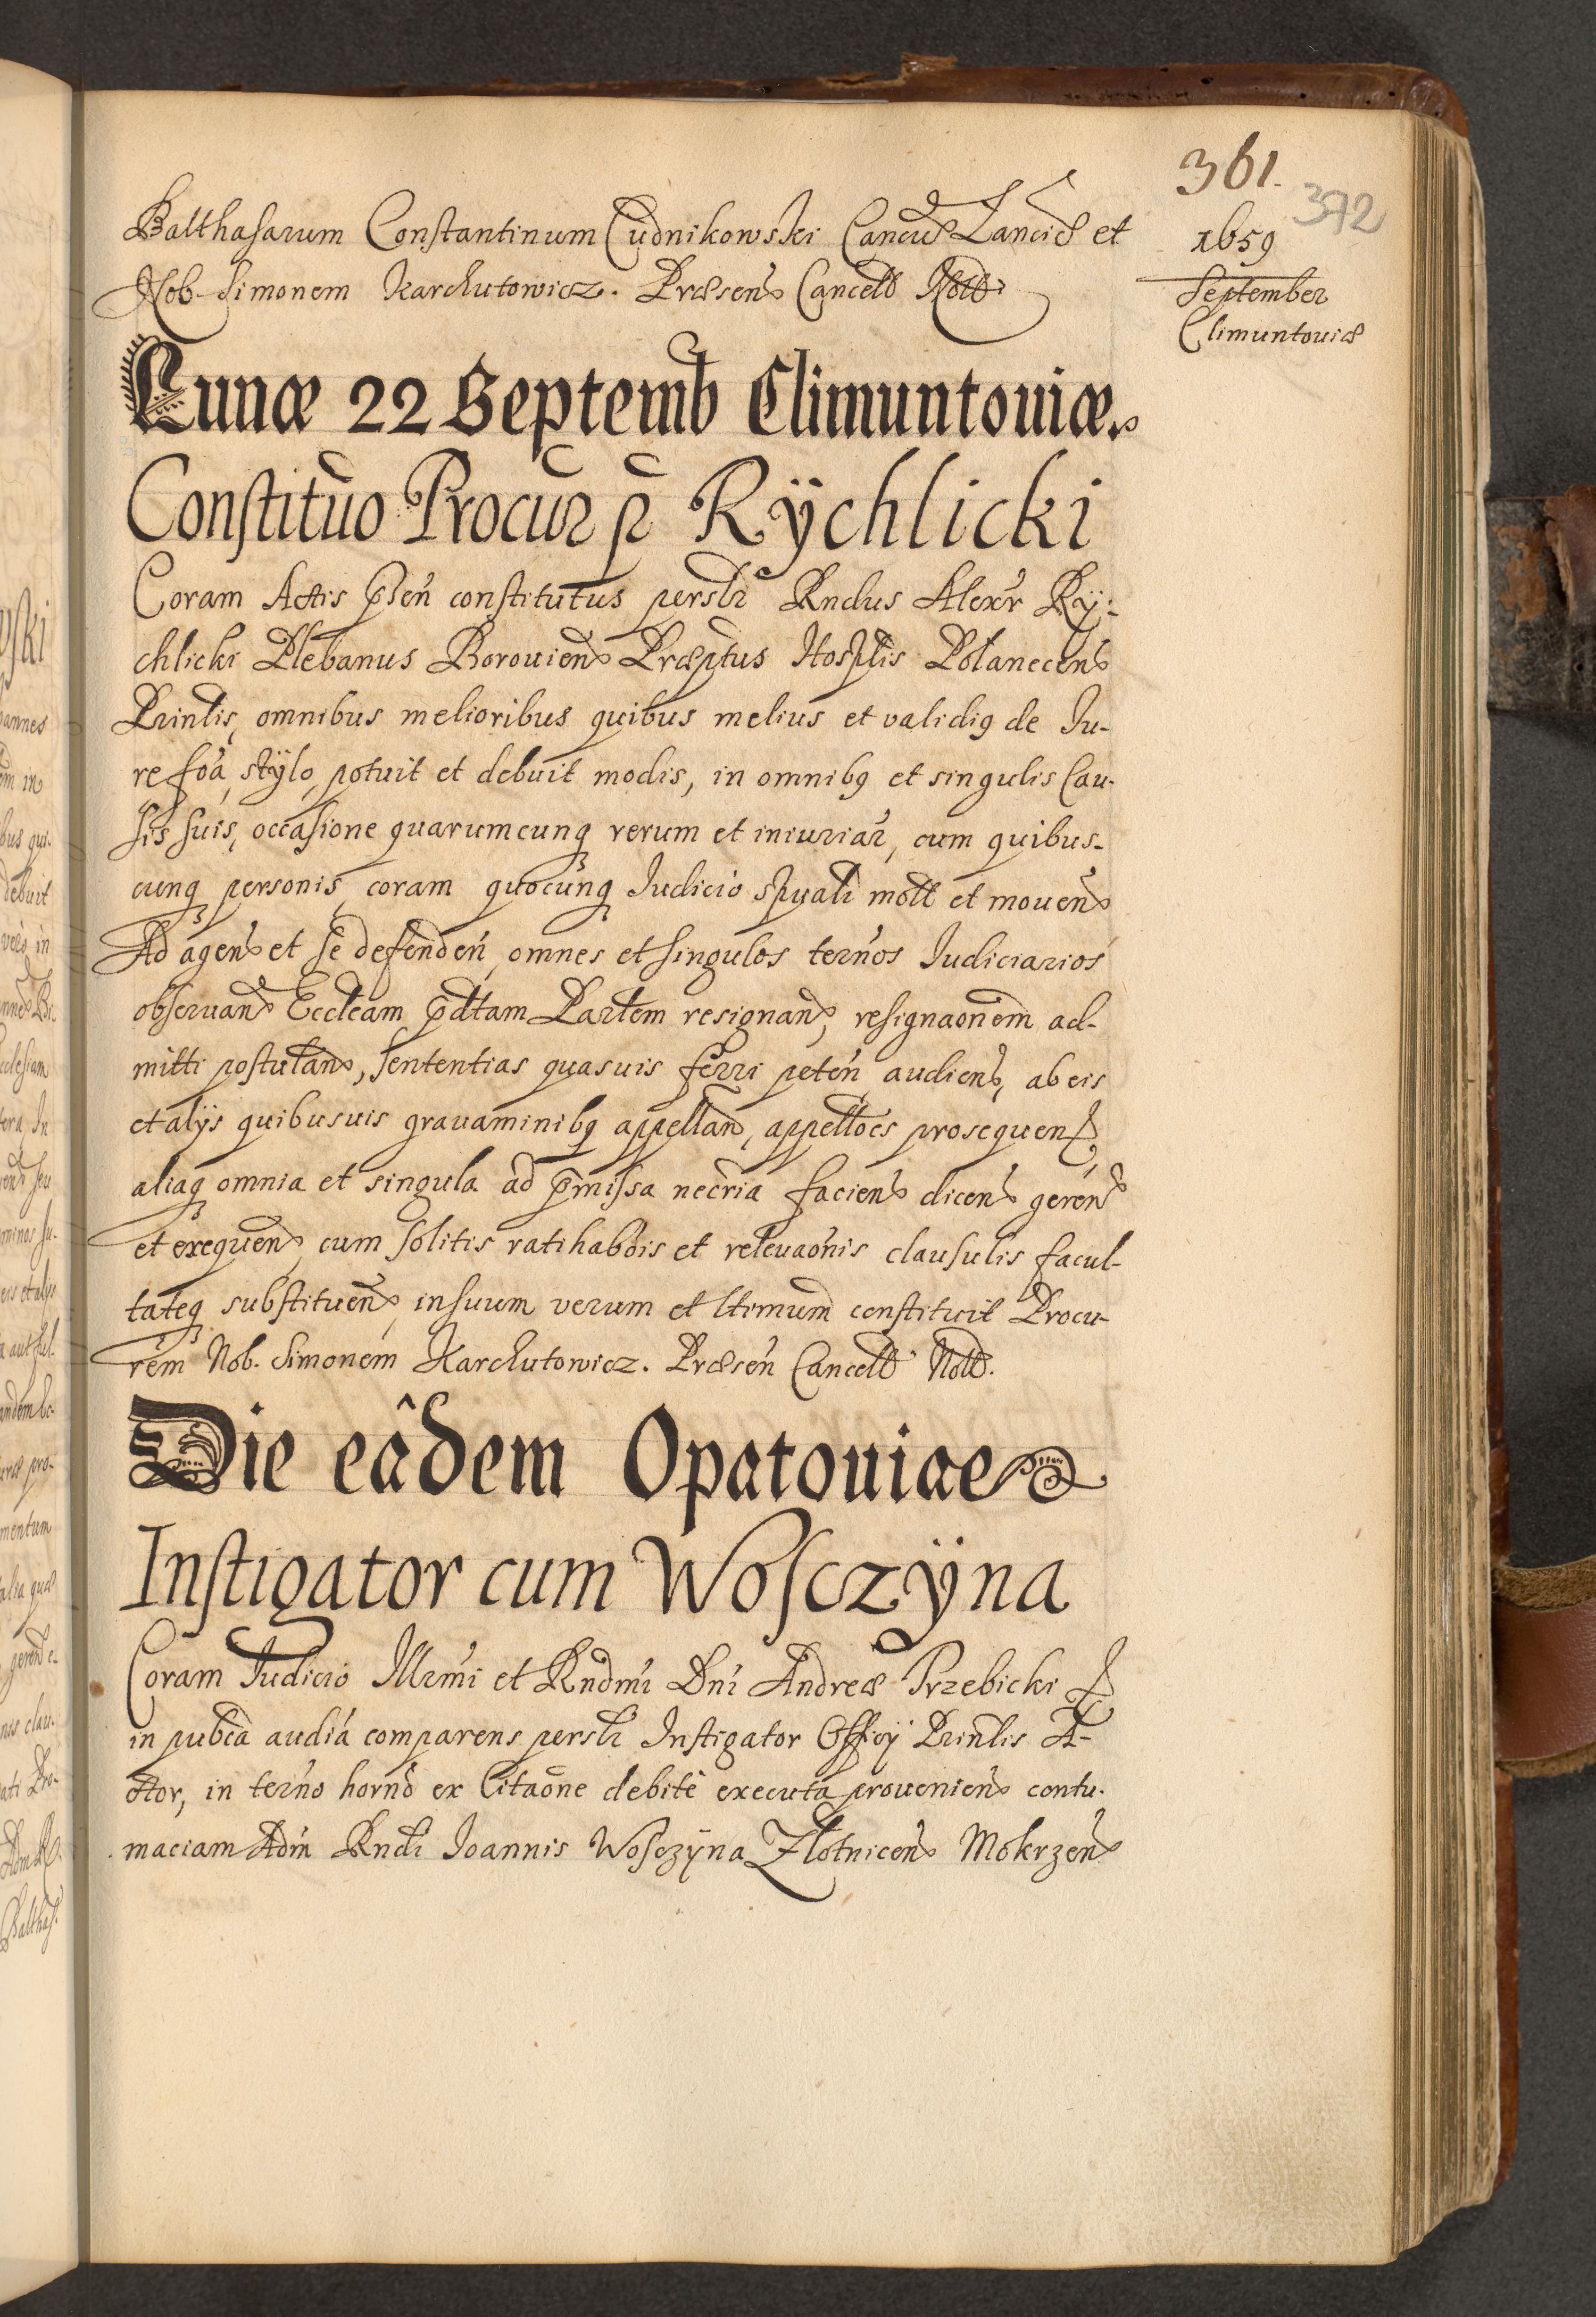 361.
372
1659
September
Climuntouiæ
Balthasarum Constantinum Cudnikowski Cancus Lanciæ et
Nob. Simonem Karchutowicz. Præsens Cancell Nott
Lunæ 22 Septemb Climuntouiæ.
Constituo Procur p Rÿchlicki
Coram Actis pñsen constitutus persłr Rndus Alexr Rÿ-
chlicki Plebanus Borouien Præptus Hosplis Polanecen
Prinlis, omnibus melioribus quibus melius et validig de Iu-
re foá, stÿlo, potuit et debuit modis, in omnibg et singulis Cau-
sis suis, occasione quarumcunq rerum et iniuriar, cum quibus-
cunq personis, coram quocunq Iudicio spuali mott et mouen
Ad agen et se defenden, omnes et singulos ternos Iudiciarios
obseruand Eccleam pdtam Partem resignan, resignaonem ad-
mitti postulan, sententias quasuis ferri peten audien, ab eis
et alÿs quibusuis grauaminibg appellan, appelloes prosequen
aliaq omnia et singula ad pmissa necria facien dicen geren
et exequen, cum solitis ratihabois et releuaonis clausulis facul-
tateq substituen, in suum verum et ltimum constituit Procu-
rem Nob. Simonem Karchutowicz. Præsen Cancell Nott.
Die eâdem Opatouiae
Instigator cum Wosczÿna
Coram Iudicio Illrmi et Rndmi Dni Andreæ Trzebicki
in pubca audiá comparens persłr Instigator Officÿ Prinlis A-
ctor, in terno horno ex Citaone debitè executa prouenien contu-
maciam Adm Rndi Ioannis Wosczÿna Zlotnicen Mokrzen